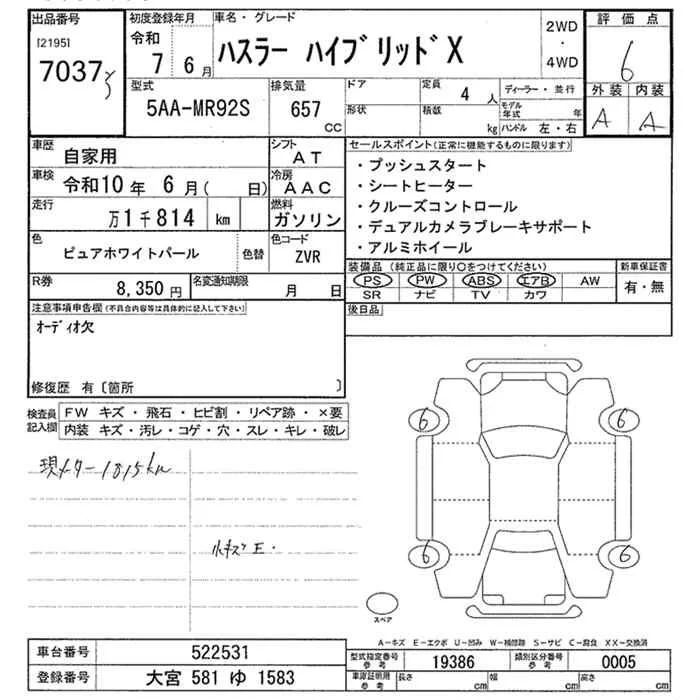 出品番号
[21951
7037
初度登録年月
令和
7 6月
車名・グレード
ハスラー ハイブリッドX
2WD
・
4WD
評価点
6
外装 内装
A A
型式
5AA-MR92S
排気量
657
CC
ドア
形状
定員
4 人
積載
kg
ディーラー・並行
モデル年式 年
ハンドル 左・右
車歴
自家用
シフト
AT
車検
令和10年 6月( 日)
冷房
AAC
走行
万1千814 km
燃料
ガソリン
色
ピュアホワイトパール
色替
色コード
ZVR
R券
8,350 円
名変通知期限
月 日
セールスポイント(正常に機能するものに限ります)
・プッシュスタート
・シートヒーター
・クルーズコントロール
・デュアルカメラブレーキサポート
・アルミホイール
装備品 (純正品に限り○をつけてください)
PS PW ABS エアB AW
SR ナビ TV カワ
新車保証書
有・無
後日品
注意事項申告欄(不具合内容等は具体的に記入して下さい)
オーディオ欠
修復歴 有〔箇所 〕
検査員記入欄
FW キズ・飛石・ヒビ割・リペア跡・×要
内装 キズ・汚レ・コゲ・穴・スレ・キレ・破レ
現メーター1815km
小キズE.
6 6
6 6
スペア
A-キズ E-エクボ U-凹み W-補修跡 S-サビ C-腐食 XX-交換済
車台番号
522531
登録番号
大宮 581 ゆ 1583
型式指定番号
参考
19386
類別区分番号
参考
0005
車庫証明用
参考
長さ cm
幅 cm
高さ cm